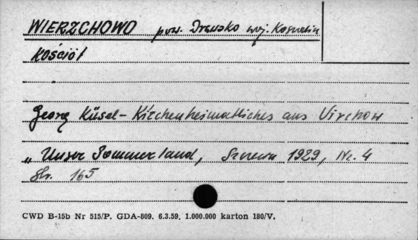 WIERZCHOWO pow. Drawsko woj. Koszalin
Kościół
Georg Küsel - Kirchenheimatliches aus Virchow
„Unser Pommerland, 1929, Nr. 4
Str. 165
CWD B-15b Nr 515/P. GDA-809. 6.3.59. 1.000.000 karton 180/V.